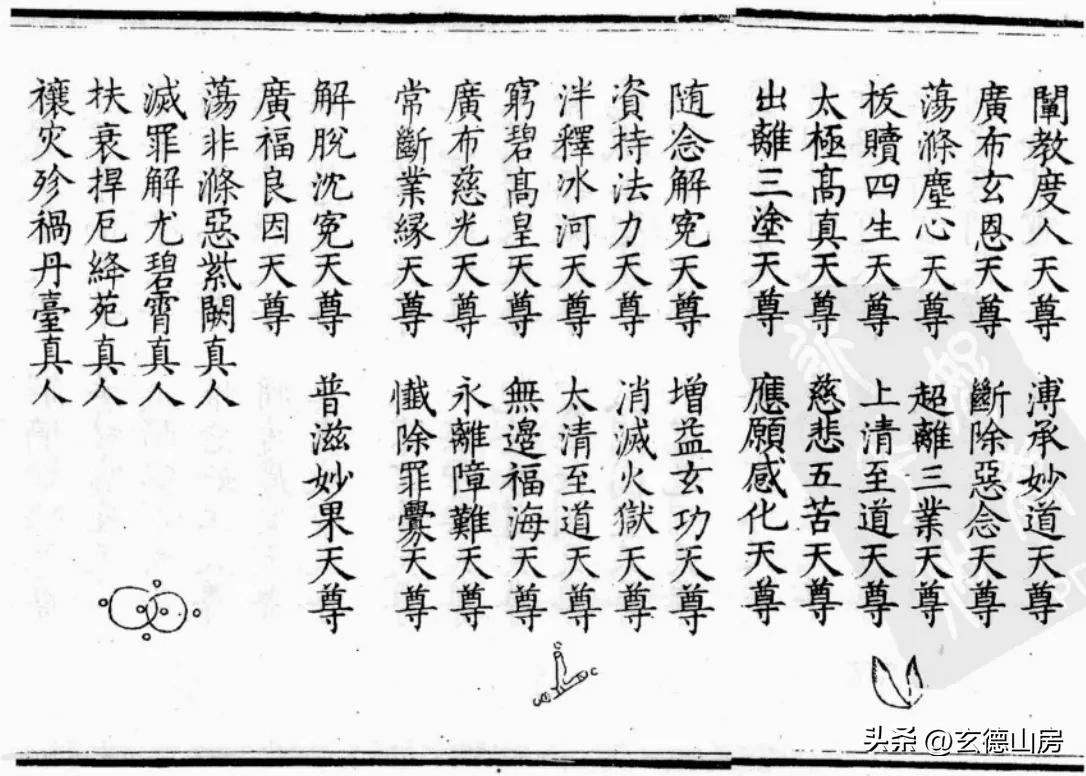 闡教度人天尊 溥承妙道天尊
廣布玄恩天尊 斷除惡念天尊
蕩滌塵心天尊 超離三業天尊
扳贖四生天尊 上清至道天尊
太極高真天尊 慈悲五苦天尊
出離三塗天尊 應願感化天尊
随念解冤天尊 增益玄功天尊
資持法力天尊 消滅火獄天尊
泮釋冰河天尊 太清至道天尊
窮碧高皇天尊 無邊福海天尊
廣布慈光天尊 永離障難天尊
常斷業緣天尊 懺除罪釁天尊
解脫沈冤天尊 普滋妙果天尊
廣福良因天尊
蕩非滌惡紫闕真人
滅罪解尤碧霄真人
扶衰捍厄絳苑真人
禳灾殄禍丹臺真人
头条 @玄德山房